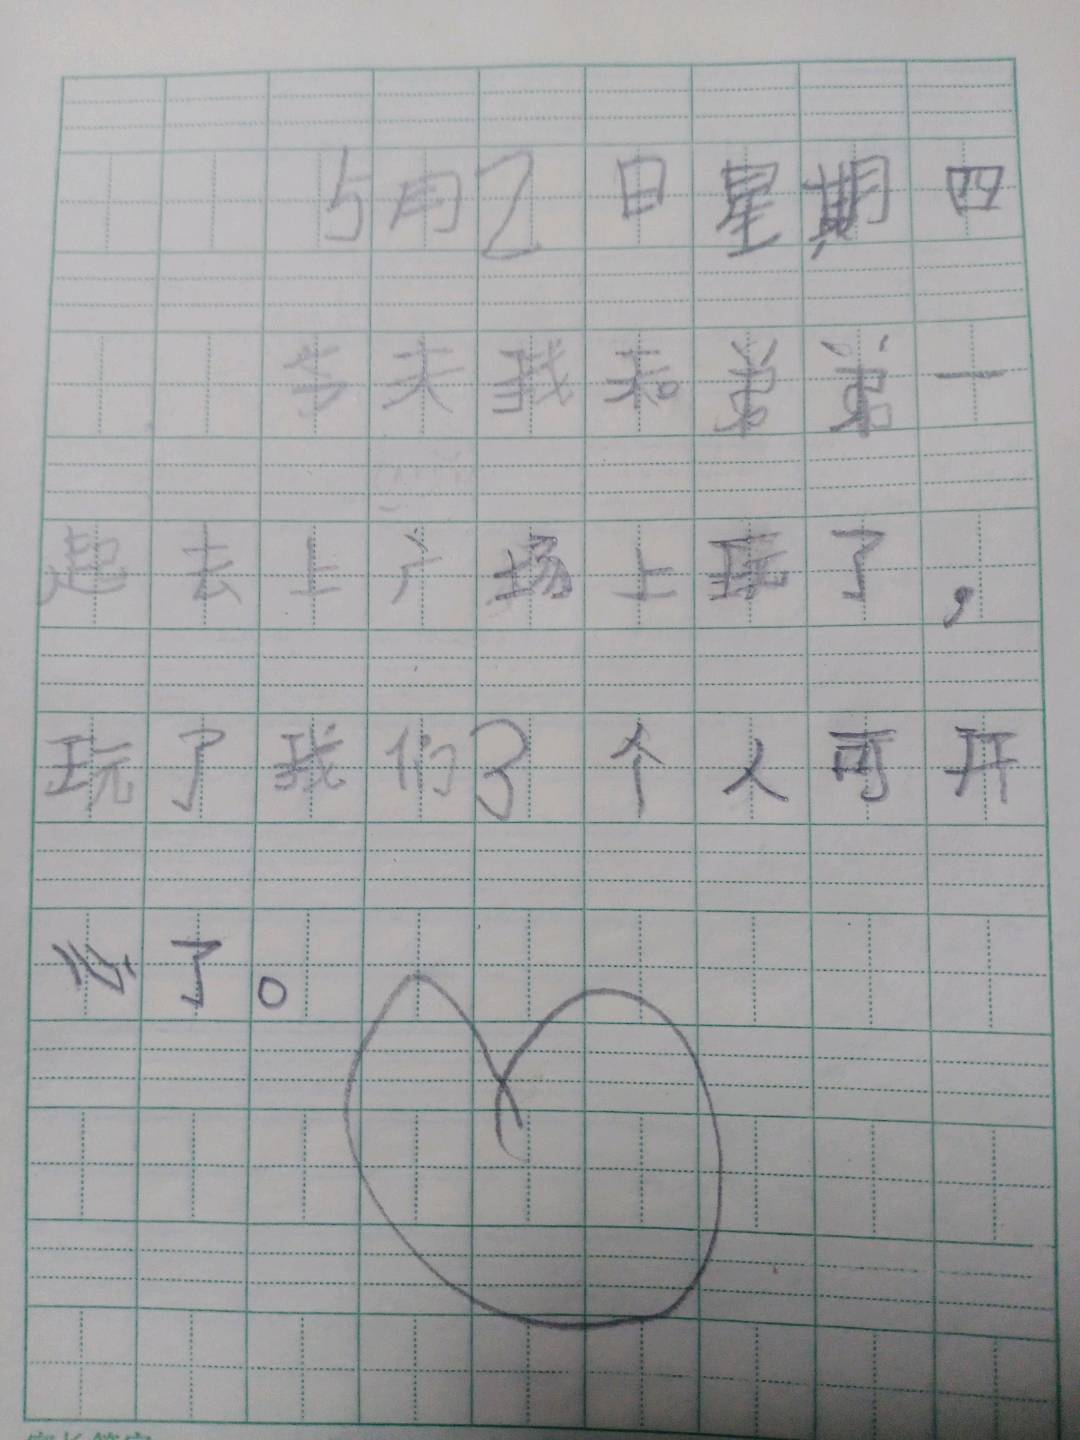 5月2日星期四
今天我和弟弟一
起去上广场上玩了，
玩了我们3个人可开
心了。